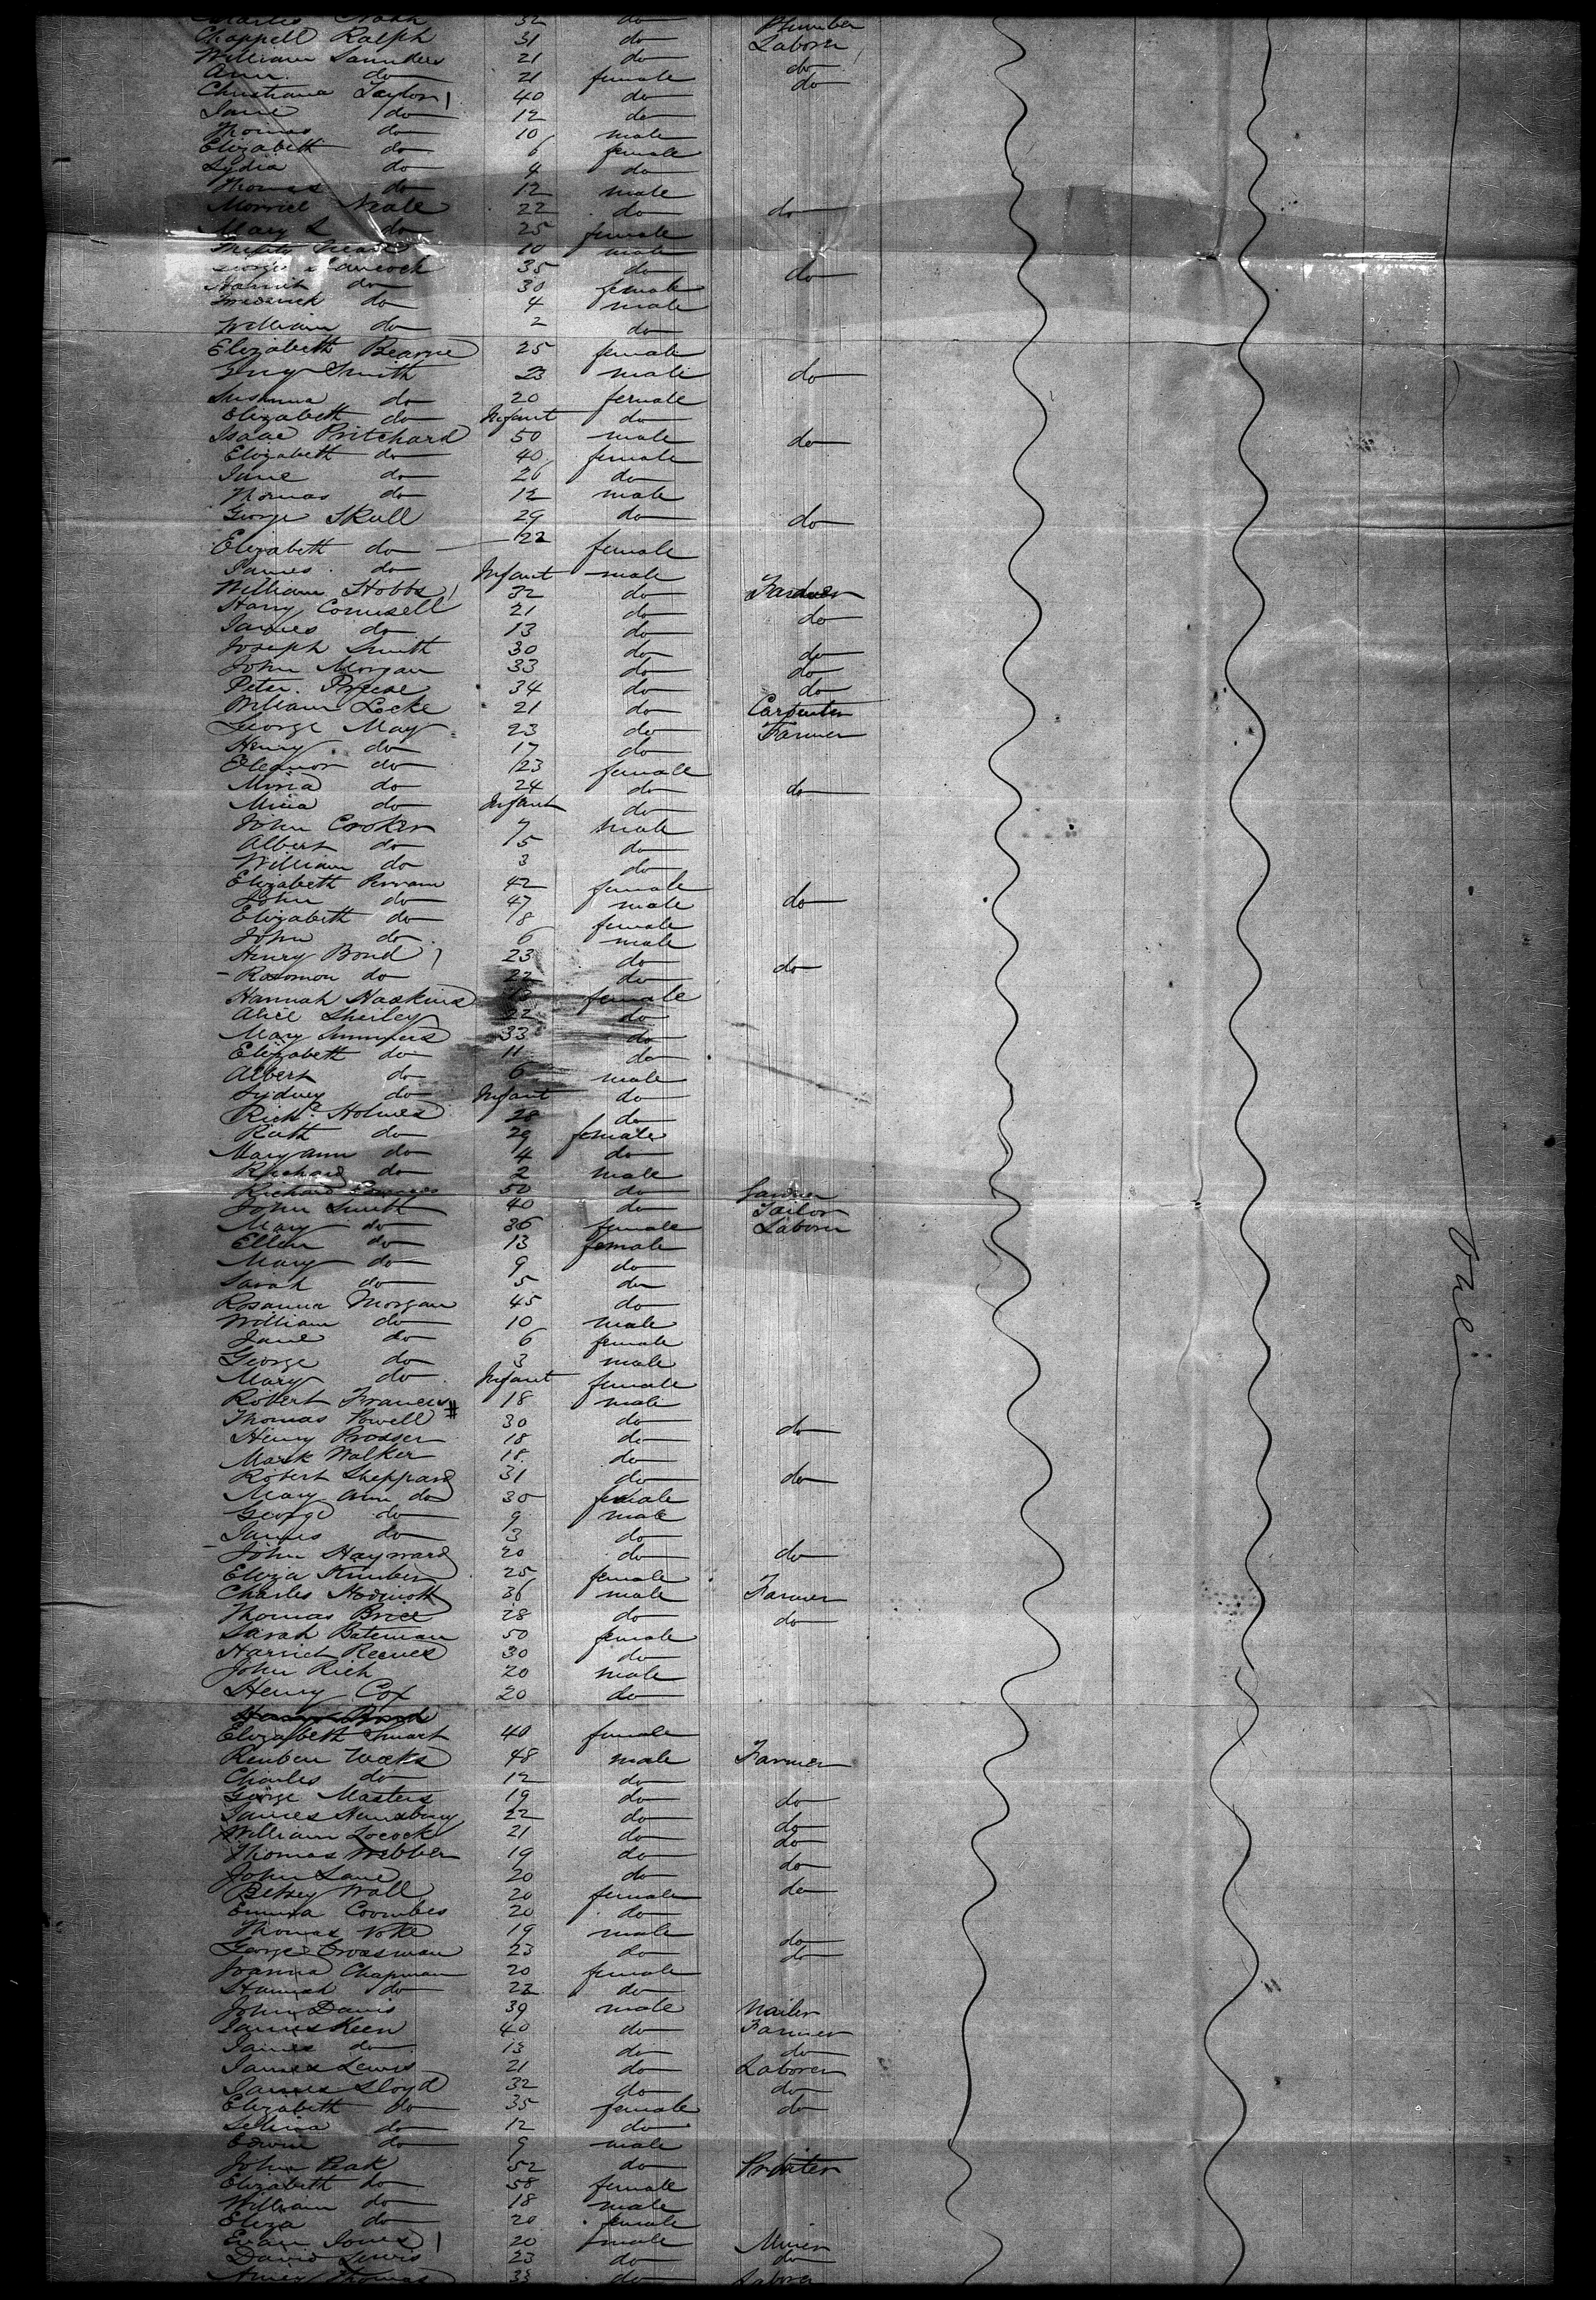 Charles Nash 32 do Plumber
Chappell Ralph 31 do Laborer
William Saunders 21 do do
Ann do 21 female do
Christiana Taylor 40 do
Jane do 12 do
Thomas do 10 male
Elizabeth do 6 female
Lydia do 4 do
Thomas do 12 male
Neale 22 do do
Mary L do 25 female
10 male
George Hancock 35 do do
do 30 female
Frederick do 4 male
William do 2 do
Elizabeth Bearne 25 female
Smith 23 male do
Susanna do 20 female
Elizabeth do Infant do
Isaac Pritchard 50 male do
Elizabeth do 40 female
Jane do 26 do
Thomas do 12 male
George Skull 29 do do
Elizabeth do 22 female
James do Infant male
William Hobbs 32 do
Harry Counsell 21 do do
James do 13 do
Joseph Smith 30 do do
John Morgan 33 do do
Peter Preece 34 do do
William Locke 21 do Carpenter
George May 23 do Farmer
Henry do 17 do
Eleanor do 23 female
Miria do 24 do do
Miria do Infant do
John Croker 7 male
Albert do 5 do
William do 3 do
Elizabeth Perram 42 female
John do 47 male do
Elizabeth do 8 female
John do 6 male
Henry Bond 23 do do
Rosomon do 22 do
Hannah Haskins female
Alice Sheiley 22 do
Mary Summers 33 do
Elizabeth do 11 do
Albert do 6 male
Sydney do Infant do
Richd Holmes 28 do
Ruth do 29 female
Mary ann do 4 do
Richard do 2 male
Richard 50 do
John Smith 40 do Tailor
Mary do 36 female Laborer
Ellen do 13 female
Mary do 9 do
Sarah do 5 do
Rosanna Morgan 45 do
William do 10 male
Jane do 6 female
George do 3 male
Mary do Infant female
Robert Francis 18 male
Thomas Powell # 30 do do
Henry Prosser 18 do
Mark Walker 18 do
Robert Sheppard 31 do do
Mary Ann do 30 female
George do 9 male
James do 3 do
John Hayward 20 do do
Eliza Kimber 25 female
Charles Hodinott 36 male Farmer
Thomas Brice 28 do do
Sarah Bateman 50 female
Harriet Reeves 30 do
John Rich 20 male
Henry Cox 20 do
Elizabeth Smart 40 female
Reuben Weeks 48 male Farmer
Charles do 12 do
George Masters 19 do do
James 22 do do
William Locock 21 do do
Thomas Webber 19 do do
John Lane 20 do do
Betsey Wall 20 female
Emma Coombes 20 do
Thomas Voke 19 male do
George Crossman 23 do do
Joanna Chapman 20 female
Hannah do 22 do
John Davis 39 male Nailer
James Keen 40 do Farmer
James do 13 do do
James Lewis 21 do Laborer
James Lloyd 32 do do
Elizabeth do 35 female do
Selina do 12 do
Edwin do 9 male
John Peak 52 do
Elizabeth do 58 female
William do 18 male
Eliza do 20 female
Evan Jones 20 male Miner
David Lewis 23 do do
Thomas 33 do Laborer